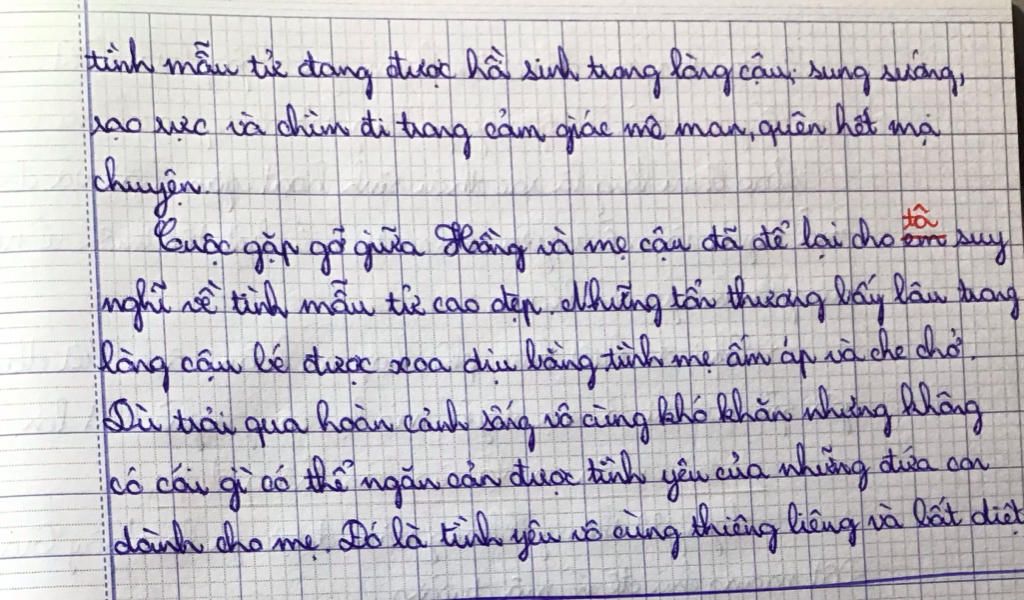 tình mẫu tử đang được hồi sinh trong lòng cậu: sung sướng,
rạo rực và chìm đi trong cảm giác mê man, quên hết mọi
chuyện.
Cuộc gặp gỡ giữa Hồng và mẹ cậu đã để lại cho em suy
nghĩ về tình mẫu tử cao đẹp. Những tổn thương bấy lâu trong
lòng cậu bé được xoa dịu bằng tình mẹ ấm áp và che chở.
Dù trải qua hoàn cảnh sống vô cùng khó khăn nhưng không
có cái gì có thể ngăn cản được tình yêu của những đứa con
dành cho mẹ. Đó là tình yêu vô cùng thiêng liêng và bất diệt